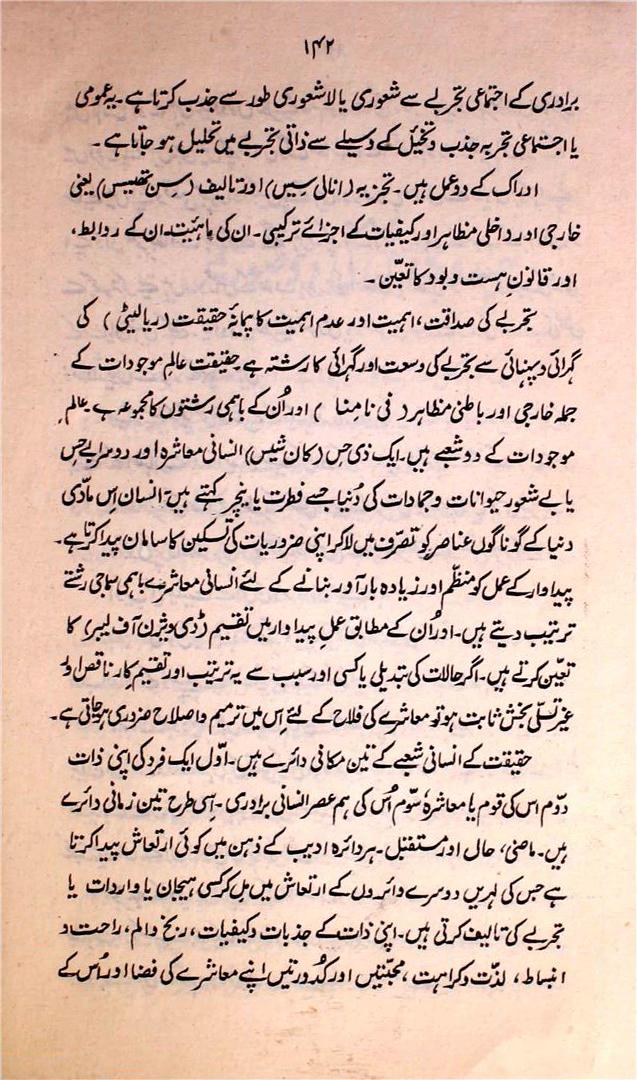 ۱۴۲
برادری کے اجتماعی تجربے سے شعوری یا لاشعوری طور سے جذب کرتا ہے۔ یہ عمومی
یا اجتماعی تجربہ جذب و تخیل کے وسیلے سے ذاتی تجربے میں تحلیل ہو جاتا ہے۔
ادراک کے دو عمل ہیں۔ تجزیہ (انالی سیس) اور تالیف (سِن تھیسس) یعنی
خارجی اور داخلی مظاہر اور کیفیات کے اجزائے ترکیبی۔ ان کی ماہئیت۔ ان کے روابط،
اور قانونِ ہست و بود کا تعیّن۔
تجربے کی صداقت، اہمیت اور عدم اہمیت کا پیمانۂ حقیقت (ریالیٹی) کی
گہرائی و پہنائی سے تجربے کی وسعت اور گہرائی کا رشتہ ہے۔ حقیقت عالمِ موجودات کے
جملہ خارجی اور باطنی مظاہر (فی نامِنا) اور اُن کے باہمی رشتوں کا مجموعہ ہے۔ عالمِ
موجودات کے دو شعبے ہیں۔ ایک ذی حِس (کان شیس) انسانی معاشرہ اور دوسرا بے حِس
یا بے شعور حیوانات و جمادات کی دُنیا جسے فطرت یا نیچر کہتے ہیں۔ انسان اِس مادّی
دنیا کے گوناگوں عناصر کو تصرّف میں لا کر اپنی ضروریات کی تسکین کا سامان پیدا کرتا ہے۔
پیداوار کے عمل کو منظّم اور زیادہ بار آور بنانے کے لئے انسانی معاشرے باہمی سماجی رشتے
ترتیب دیتے ہیں۔ اور اُن کے مطابق عملِ پیداوار میں تقسیم (ڈی ویژن آف لیبر) کا
تعیّن کرتے ہیں۔ اگر حالات کی تبدیلی یا کسی اور سبب سے یہ ترتیب اور تقسیمِ کار ناقص اور
غیر تسلّی بخش ثابت ہو تو معاشرے کی فلاح کے لئے اِس میں ترمیم و اصلاح ضروری ہو جاتی ہے۔
حقیقت کے انسانی شعبے کے تین مکانی دائرے ہیں۔ اوّل ایک فرد کی اپنی ذات
دوّم اس کی قوم یا معاشرہ سوّم اُس کی ہم عصر انسانی برادری۔ اِسی طرح تین زمانی دائرے
ہیں۔ ماضی، حال اور مستقبل۔ ہر دائرہ ادیب کے ذہن میں کوئی ارتعاش پیدا کرتا
ہے جس کی لہریں دوسرے دائروں کے ارتعاش میں مِل کر کسی ہیجان یا واردات یا
تجربے کی تالیف کرتی ہیں۔ اپنی ذات کے جذبات و کیفیات، رنج و الم، راحت و
انبساط، لذّت و کراہت، محبّتیں اور کُدورتیں اپنے معاشرے کی فضا اور اُس کے